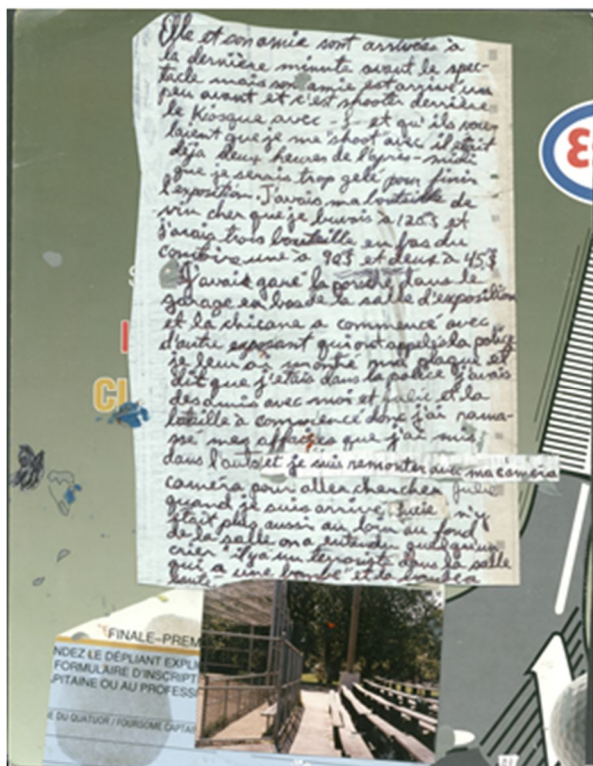 Elle et son amie sont arrivées à
la dernière minute avant le spec-
tacle mais son amie est arrivé un
peu avant et c'est shooter derrière
le Kiosque avec et qu'ils vou-
laient que je me "shoot" avec il était
déja deux heures de l'après-midi
que je serais trop gelé pour finir
l'exposition. J'avais ma bouteille de
vin cher que je buvais à 125$ et
j'avais trois bouteille en bas du
comtoire une à 90$ et deux à 45$
J'avais garé la porsche dans le
garage en bas de la salle d'exposition
et la chicane a commencé avec
d'autre exposant qui ont appelé la police
je leur ai montré ma plaque et
dit que j'étais dans la police j'avais
des amis avec moi et et la
bataille à commencé donc j'ai rama-
sse mes affaires que j'ai mis
dans l'auto et je suis remonter avec ma caméra
caméra pour aller chercher Julie
quand je suis arrivé n'y
était plus aussi au loin au fond
de la salle on a entendu quelqu'un
crier "il y a un terroriste dans la salle
qui a une bombe" et la bombe a
sauté
S
CL
FINALE–PREM
NDEZ LE DÉPLIANT EXPLI
FORMULAIRE D'INSCRIPT
APITAINE OU AU PROFESSI
E DU QUATUOR / FOURSOME CAPTAI